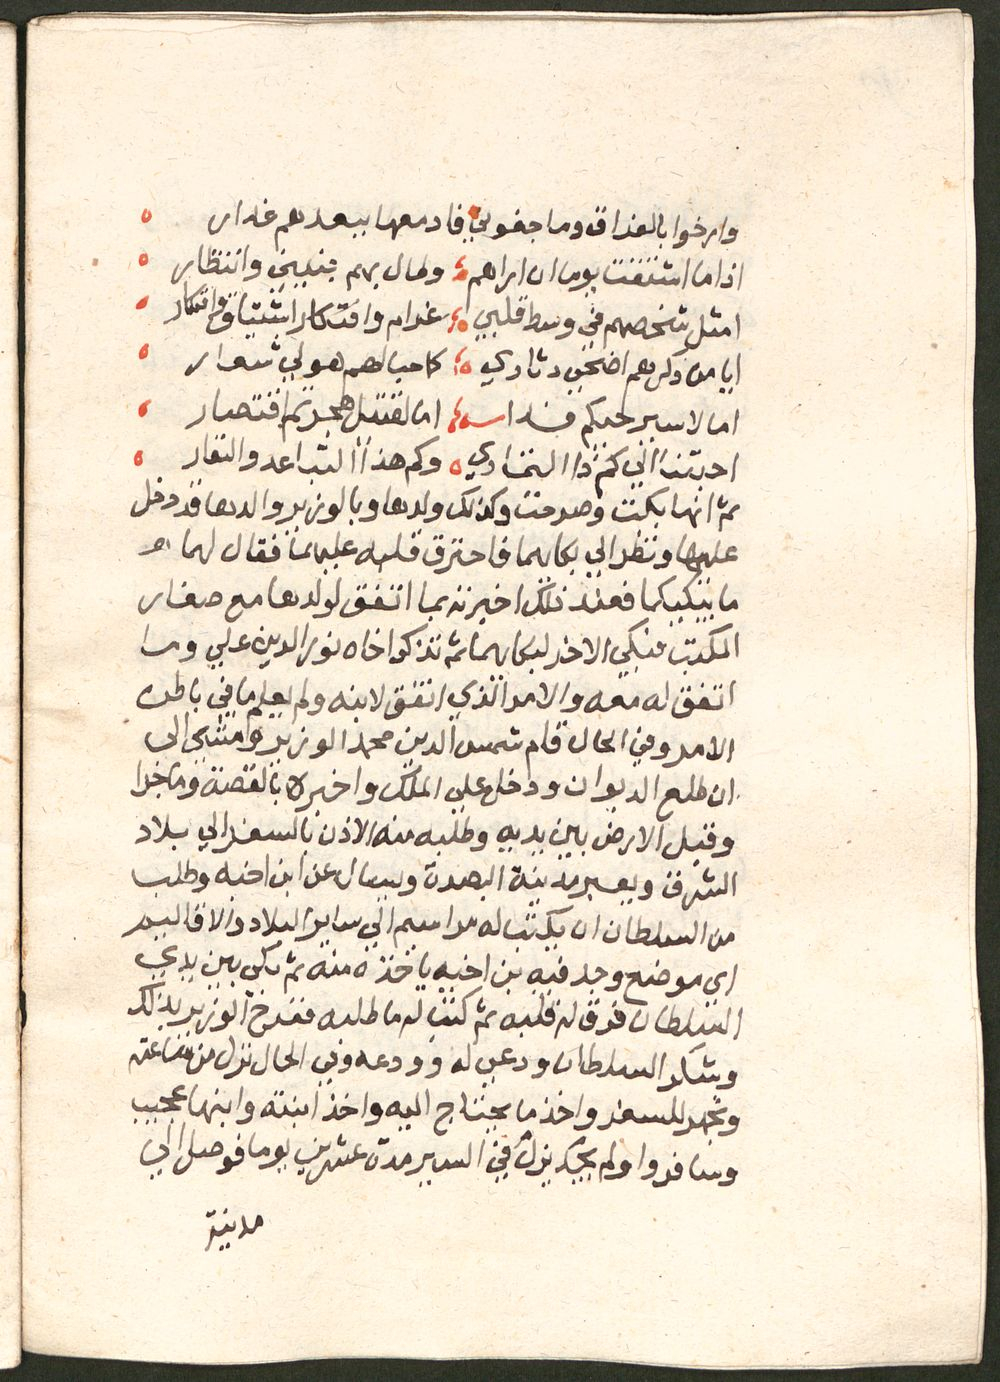 وارخوا بالفراق دما جفوني فادمعها ببعدهم غدار
اذا ما اشتقت يوما ان اراهم وطال بهم حنيني وانتظار
امثل شخصهم في وسط قلبي غرام وافتكار اشتياق وافتكار
ايا من ذكرهم اضحي دثاري كما حبا لهم هو لي شعار
اما لاسير حبكم فدا اما لقتيل هجركم اقتصار
احبتنا الي كم ذا التمادي وكم هذا التباعد والنفار
ثم انها بكت وصرخت وكذلك ولدها وبالوزير والدها قد دخل
عليها ونظر الي بكايهما فاحترق قلبه عليهما فقال لهما
ما يبكيكما فعند ذلك اخبرته بما اتفق لولدها مع صغار
المكتب فبكي الاخر لبكايهما ثم تذكر اخاه نور الدين علي وما
اتفق له معه والامر الذي اتفق لابنه ولم يعلم ما في باطن
الامر وفي الحال قام شمس الدين محمد الوزير ومشي الى
ان طلع الديوان ودخل علي الملك واخبره بالقصة وما جرا
وقبل الارض بين يديه وطلب منه الاذن بالسفر الي بلاد
الشرق ويعبر مدينة البصرة ويسال عن ابن اخيه وطلب
من السلطان ان يكتب له مراسيم الي ساير البلاد والاقاليم
اي موضع وجد فيه بن اخيه ياخذه منه ثم بكي بين يدي
السلطان فرق له قلبه ثم كتب له ما طلبه ففرح الوزير بذلك
وشكر السلطان ودعي له وودعه وفي الحال نزل من ساعته
وتجهز للسفر واخذ ما يحتاج اليه واخذ ابنته وابنها عجيب
وسافروا ولم يزل في السير مدة عشرين يوما فوصل الي
مدينة